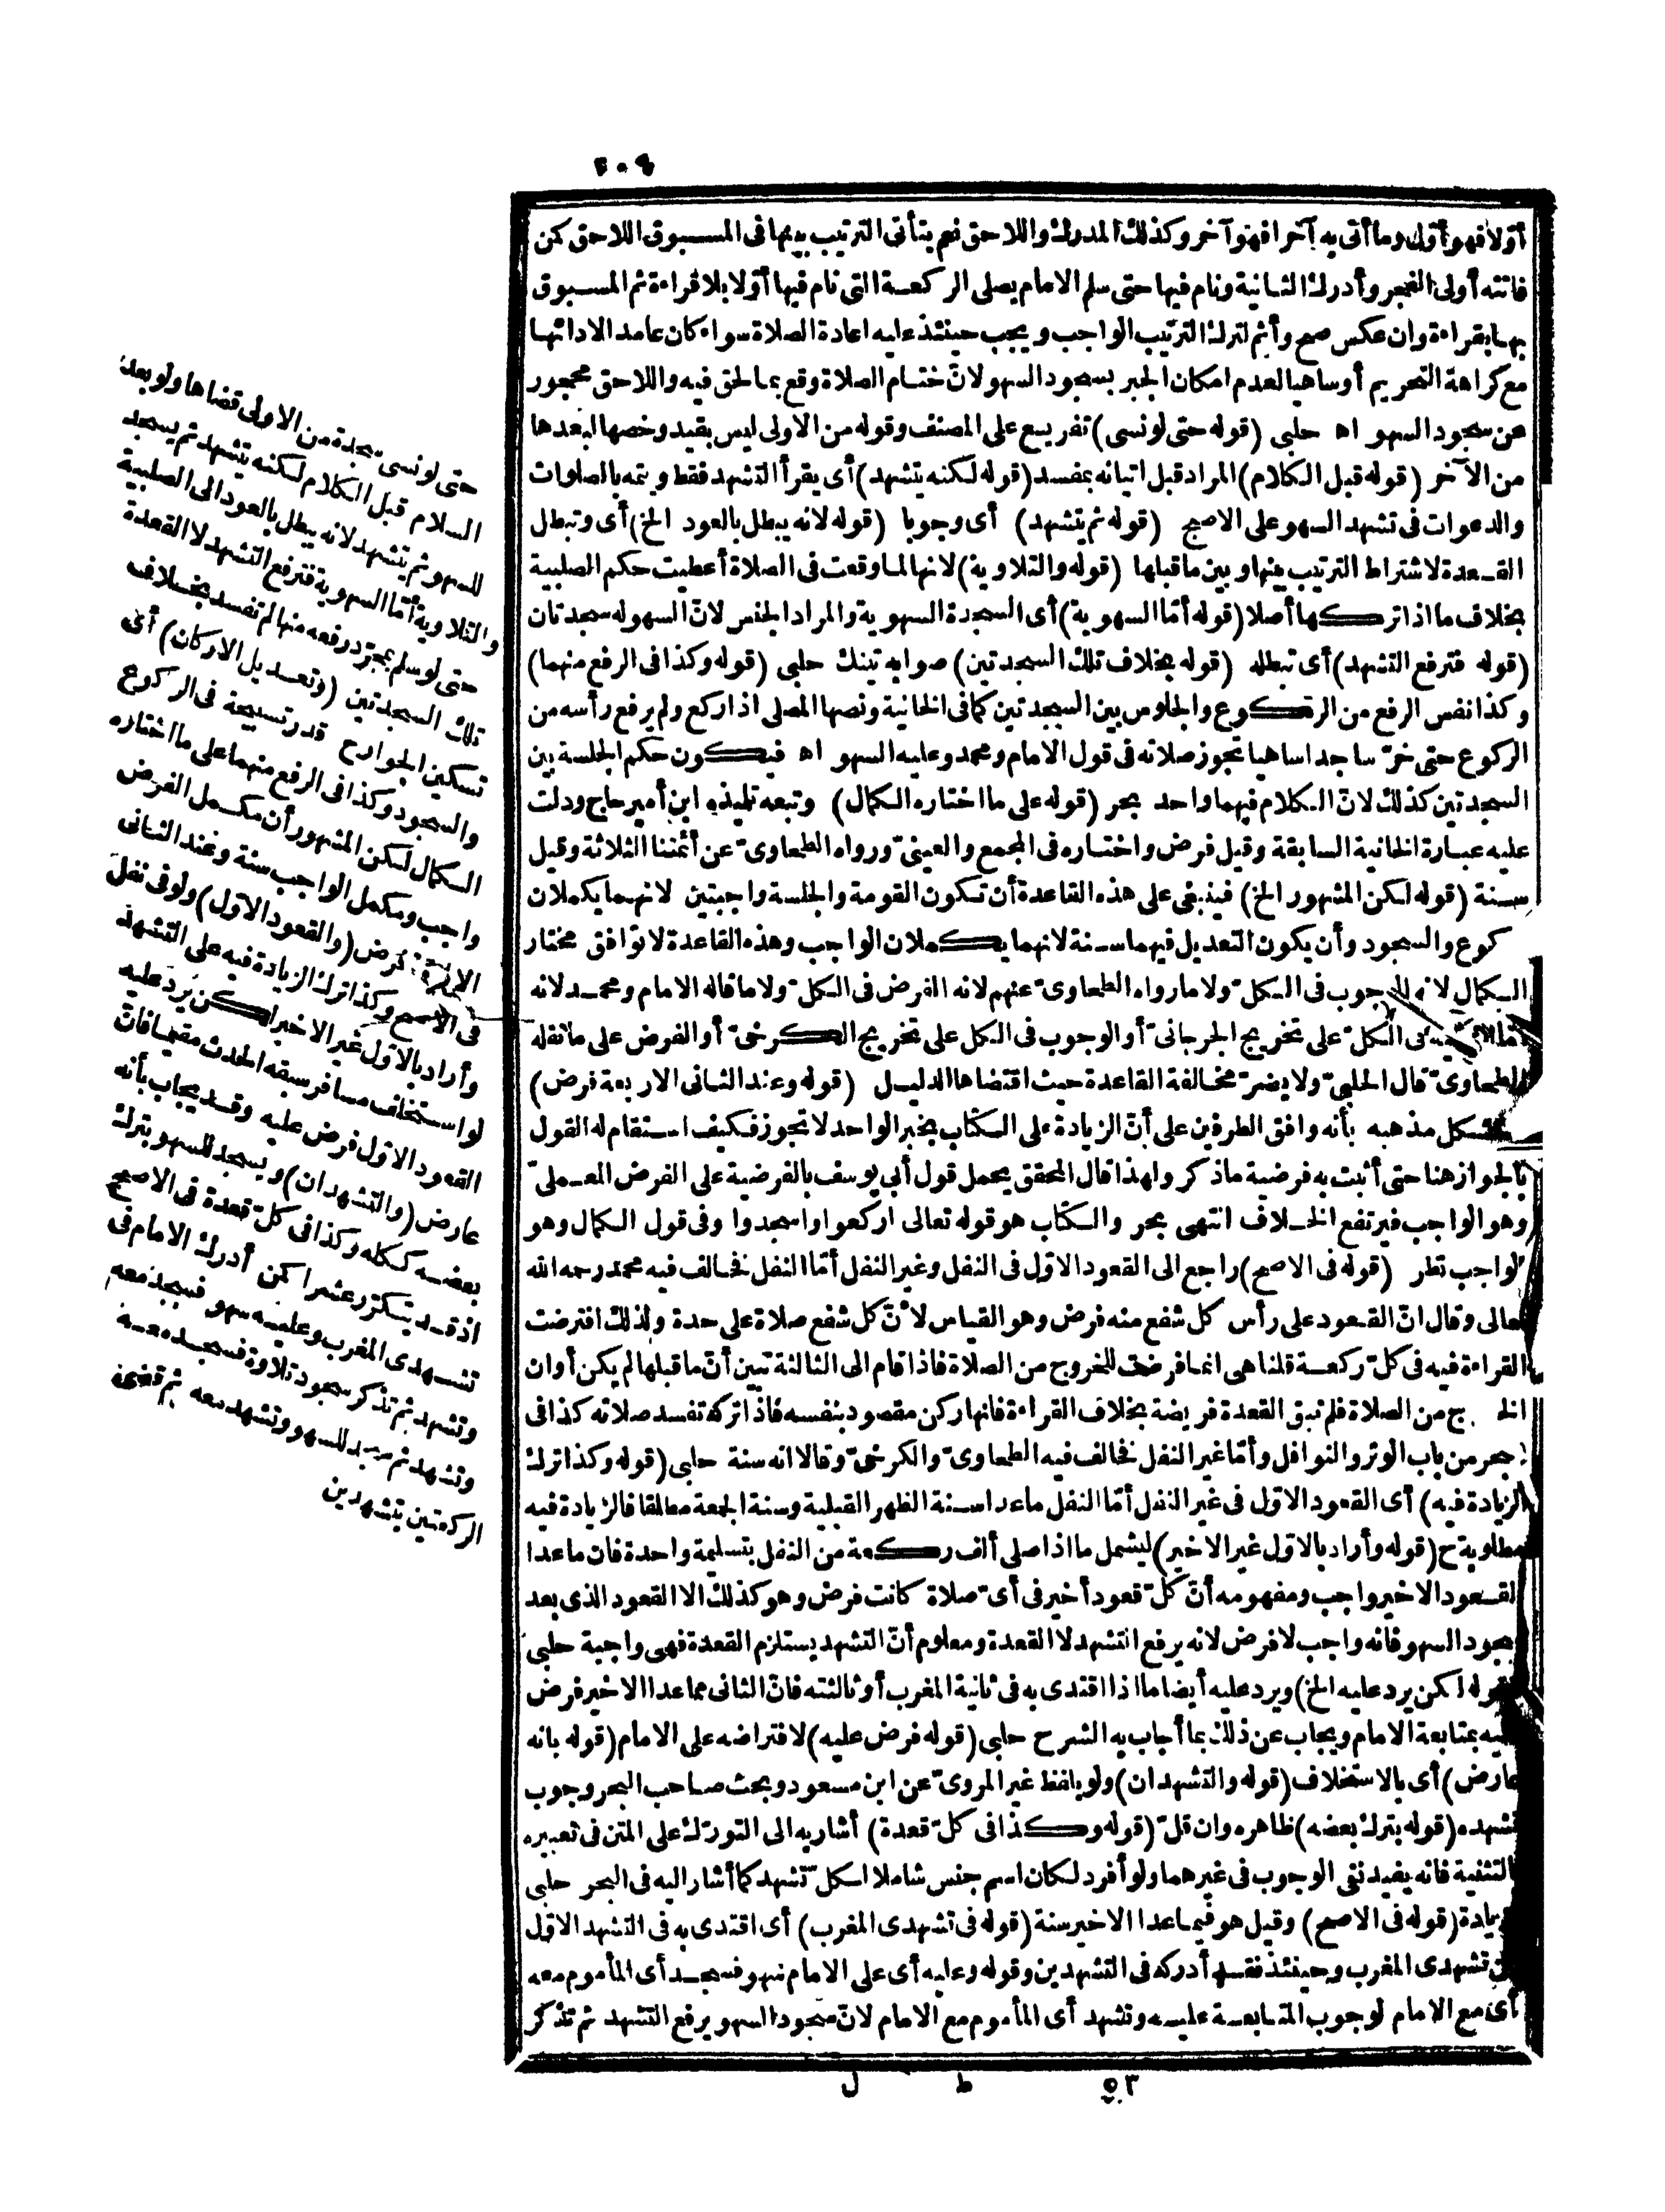 ٢٠٩
أوّلا فهو أوّل وما أتى به آخرا فهو آخر وكذلك المدرك واللاحق نعم يتأتى الترتيب بينهما فى المسبوق اللاحق كمن
فاتته أولى الفجر وأدرك الثانية ونام فيها حتى سلم الامام يصلى الركعة التى نام فيها أوّلا بلا قراءة ثم المسبوق
بها بقراءة وان عكس صح وأثم لترك الترتيب الواجب ويجب حينئذ عليه اعادة الصلاة سواء كان عامدا لادائها
مع كراهة التحريم أو ساهيا لعدم امكان الجبر بسجود السهو لانّ ختام الصلاة وقع بما لحق فيه واللاحق محجور
عن سجود السهو اه حلبى (قوله حتى لو نسى) تفريع على المصنف وقوله من الاولى ليس بقيد وخصها لبعدها
من الآخر (قوله قبل الكلام) المراد قبل اتيانه بمفسد (قوله لكنه يتشهد) أى يقرأ التشهد فقط ويتمه بالصلوات
والدعوات فى تشهد السهو على الاصح (قوله ثم يتشهد) أى وجوبا (قوله لانه يبطل بالعود الخ) أى وتبطل
القعدة لاشتراط الترتيب بينها وبين ما قبلها (قوله والتلاوية) لانها لما وقعت فى الصلاة أعطيت حكم الصلبية
بخلاف ما اذا تركها أصلا (قوله أمّا السهوية) أى السجدة السهوية والمراد الجنس لانّ السهو له سجدتان
(قوله فترفع التشهد) أى تبطله (قوله بخلاف تلك السجدتين) صوابه تينك حلبى (قوله وكذا فى الرفع منهما)
وكذا نفس الرفع من الركوع والجلوس بين السجدتين كما فى الخانية ونصها المصلى اذا ركع ولم يرفع رأسه من
الركوع حتى خرّ ساجدا ساهيا تجوز صلاته فى قول الامام ومحمد وعليه السهو اه فيكون حكم الجلسة بين
السجدتين كذلك لانّ الكلام فيهما واحد بحر (قوله على ما اختاره الكمال) وتبعه تلميذه ابن أمير حاج ودلت
عليه عبارة الخانية السابقة وقيل فرض واختاره فى المجمع والعينىّ ورواه الطحاوىّ عن أئمتنا الثلاثة وقيل
سنة (قوله لكن المشهور الخ) فينبغى على هذه القاعدة أن تكون القومة والجلسة واجبتين لانهما يكملان
كوع والسجود وأن يكون التعديل فيهما سنة لانهما يكملان الواجب وهذه القاعدة لا توافق مختار
الكمال لانه للوجوب فى الكل ولا ما رواه الطحاوىّ عنهم لانه الفرض فى الكلّ ولا ما قاله الامام ومحمد لانه
فى الكلّ على تخريج الجرجانىّ أو الوجوب فى الكل على تخريج الكرخىّ أو الفرض على ما نقله
الطحاوىّ قال الحلبىّ ولا يضرّ مخالفة القاعدة حيث اقتضاها الدليل (قوله وعند الثانى الاربعة فرض)
مذهبه بأنه وافق الطرفين على أنّ الزيادة على الكتاب بخبر الواحد لا تجوز فكيف استقام له القول
بالجواز هنا حتى أثبت به فرضية ما ذكر ولهذا قال المحقق يحمل قول أبى يوسف بالفرضية على الفرض العملىّ
وهو الواجب فيرتفع الخلاف انتهى بحر والكتاب هو قوله تعالى اركعوا واسجدوا وفى قول الكمال وهو
الواجب نظر (قوله فى الاصح) راجع الى القعود الاوّل فى النفل وغير النفل أمّا النفل فخالف فيه محمد رحمه الله
تعالى وقال انّ القعود على رأس كل شفع منه فرض وهو القياس لانّ كل شفع صلاة على حدة ولذلك افترضت
القراءة فيه فى كلّ ركعة قلنا هى انما فرضت للخروج من الصلاة فاذا قام الى الثالثة تبين أنّ ما قبلها لم يكن أوان
الخروج من الصلاة فلم تبق القعدة فريضة بخلاف القراءة فانها ركن مقصود بنفسه فاذا تركه تفسد صلاته كذا فى
البحر من باب الوتر والنوافل وأمّا غير النفل فخالف فيه الطحاوىّ والكرخىّ وقالا انه سنة حلبى (قوله وكذا ترك
الزيادة فيه) أى القعود الاوّل فى غير النفل أمّا النفل ما عدا سنة الظهر القبلية وسنة الجمعة مطلقا فالزيادة فيه
مطلوبة ح (قوله وأراد بالاوّل غير الاخير) ليشمل ما اذا صلى ألف ركعة من النفل بتسليمة واحدة فان ما عدا
القعود الاخير واجب ومفهومه أنّ كلّ قعود أخير فى أىّ صلاة كانت فرض وهو كذلك الا القعود الذى بعد
سجود السهو فانه واجب لا فرض لانه يرفع التشهد لا القعدة ومعلوم أنّ التشهد يستلزم القعدة فهى واجبة حلبى
(قوله لكن يرد عليه الخ) ويرد عليه أيضا ما اذا اقتدى به فى ثانية المغرب أو ثالثته فانّ الثانى مما عدا الاخير فرض
عليه بمتابعة الامام ويجاب عن ذلك بما أجاب به الشرح حلبى (قوله فرض عليه) لافتراضه على الامام (قوله بانه
عارض) أى بالاستخلاف (قوله والتشهدان) ولو بلفظ غير المروىّ عن ابن مسعود وبحث صاحب البحر وجوب
تشهده (قوله بترك بعضه) ظاهره وان قلّ (قوله وكذا فى كلّ قعدة) أشار به الى التورّك على المتن فى تعبيره
بالتثنية فانه يفيد نفى الوجوب فى غيرهما ولو أفرد لكان اسم جنس شاملا لكلّ تشهد كما أشار اليه فى البحر حلبى
بزيادة (قوله فى الاصح) وقيل هو فيما عدا الاخير سنة (قوله فى تشهدى المغرب) أى اقتدى به فى التشهد الاوّل
من تشهدى المغرب وحينئذ فقد أدركه فى التشهدين وقوله وعليه أى على الامام سهو فسجد أى المأموم معه
أى مع الامام لوجوب المتابعة عليه وتشهد أى المأموم مع الامام لانّ سجود السهو يرفع التشهد ثم تذكر
حتى لو نسى سجدة من الاولى قضاها ولو بعد
السلام قبل الكلام لكنه يتشهد ثم يسجد
للسهو ثم يتشهد لانه يبطل بالعود الى الصلبية
والتلاوية أمّا السهوية فترفع التشهد لا القعدة
حتى لو سلم بمجرّد رفعه منها لم تفسد بخلاف
تلك السجدتين (وتعديل الاركان) أى
تسكين الجوارح قدر تسبيحة فى الركوع
والسجود وكذا فى الرفع منهما على ما اختاره
الكمال لكن المشهور أن مكمل الفرض
واجب ومكمل الواجب سنة وعند الثانى
الاربعة فرض (والقعود الاوّل) ولو فى نفل
فى الاصح وكذا ترك الزيادة فيه على التشهد
وأراد بالاوّل غير الاخير لكن يرد عليه
لو استخلف مسافر سبقه الحدث مقيما فانّ
القعود الاوّل فرض عليه وقد يجاب بأنه
عارض (والتشهدان) ويسجد للسهو بترك
بعضه ككله وكذا فى كلّ قعدة فى الاصح
اذ قد يتكرّر عشرا كمن أدرك الامام فى
تشهدى المغرب وعليه سهو فسجد معه
وتشهد ثم تذكر سجود تلاوة فسجد معه
وتشهد ثم سجد للسهو وتشهد معه ثم قضى
الركعتين بتشهدين
٥٣ ط ل